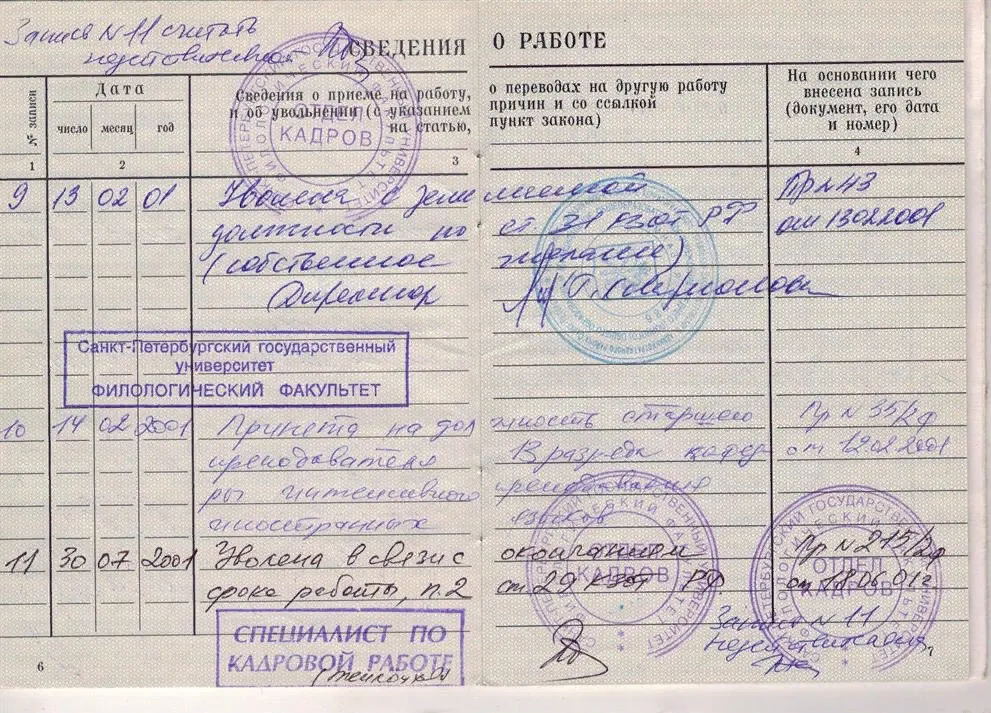 Запись N 11 считать
недействительной
СВЕДЕНИЯ О РАБОТЕ
№ записи
Дата
число месяц год
Сведения о приеме на работу, о переводах на другую работу
и об увольнении (с указанием причин и со ссылкой
на статью, пункт закона)
На основании чего
внесена запись
(документ, его дата
и номер)
1 2 3 4
ОТДЕЛ
КАДРОВ
9 13 02 01 Уволена с зани маемой Пр N 43
должности по ст. 31 КЗоТ РФ от 13022001
(собственное желание)
Директор
Санкт-Петербургский государственный
университет
ФИЛОЛОГИЧЕСКИЙ ФАКУЛЬТЕТ
10 14 02 2001 Принята на дол жность старшего Пр N 35/2ф
преподавателя 13 разряда кафед от 12.02.2001
ры интенсивного преподавания
иностранных языков
11 30 07 2001 Уволена в связи с окончанием Пр N 215/2ф
срока работы, п.2 ст 29 КЗоТ РФ от 18.06.01г
ОТДЕЛ
КАДРОВ
ОТДЕЛ
КАДРОВ
СПЕЦИАЛИСТ ПО
КАДРОВОЙ РАБОТЕ
Запись N 11
недействительна
6 7